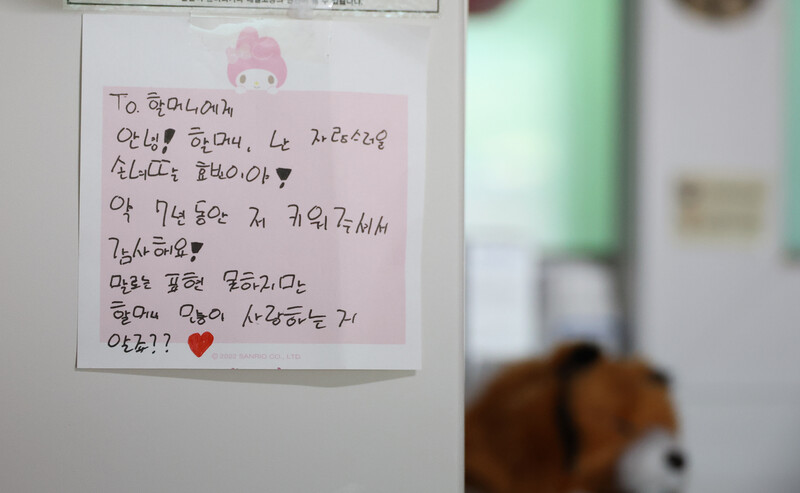 To. 할머니에게
안녕! 할머니, 난 자랑스러울
손녀또는 효빈이야!
약 7년 동안 저 키워주셔서
감사해요!
말로는 표현 못하지만
할머니 많이 사랑하는 지
알죠??
© 2022 SANRIO CO., LTD.